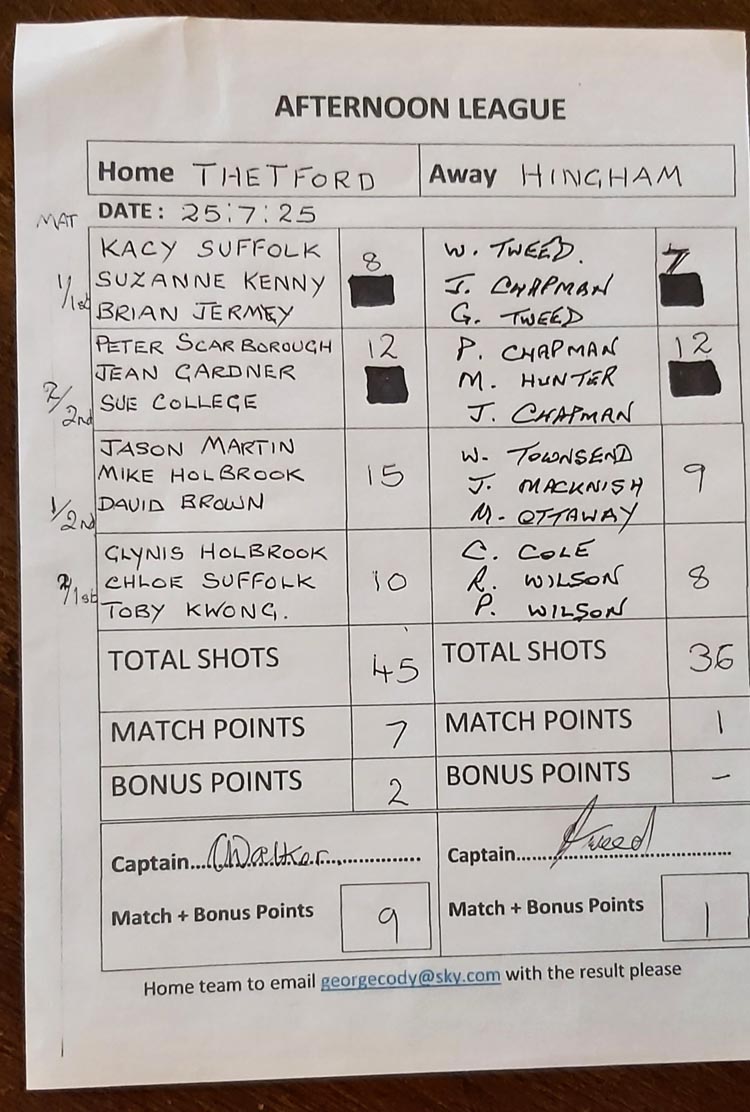 AFTERNOON LEAGUE
Home THETFORD Away HINGHAM
MAT DATE: 25:7:25
KACY SUFFOLK 8 W. TWEED. 7
1/1st SUZANNE KENNY J. CHAPMAN
BRIAN JERMEY G. TWEED
PETER SCARBOROUGH 12 P. CHAPMAN 12
JEAN GARDNER M. HUNTER
2/2nd SUE COLLEGE J. CHAPMAN
JASON MARTIN W. TOWNSEND
MIKE HOLBROOK 15 J. MACKNISH 9
1/2nd DAVID BROWN M. OTTAWAY
GLYNIS HOLBROOK C. COLE
2/1st CHLOE SUFFOLK 10 R. WILSON 8
TOBY KWONG. P. WILSON
TOTAL SHOTS 45 TOTAL SHOTS 36
MATCH POINTS 7 MATCH POINTS 1
BONUS POINTS 2 BONUS POINTS –
Captain...CWalker................ Captain.......Tweed................
Match + Bonus Points 9 Match + Bonus Points 1
Home team to email georgecody@sky.com with the result please